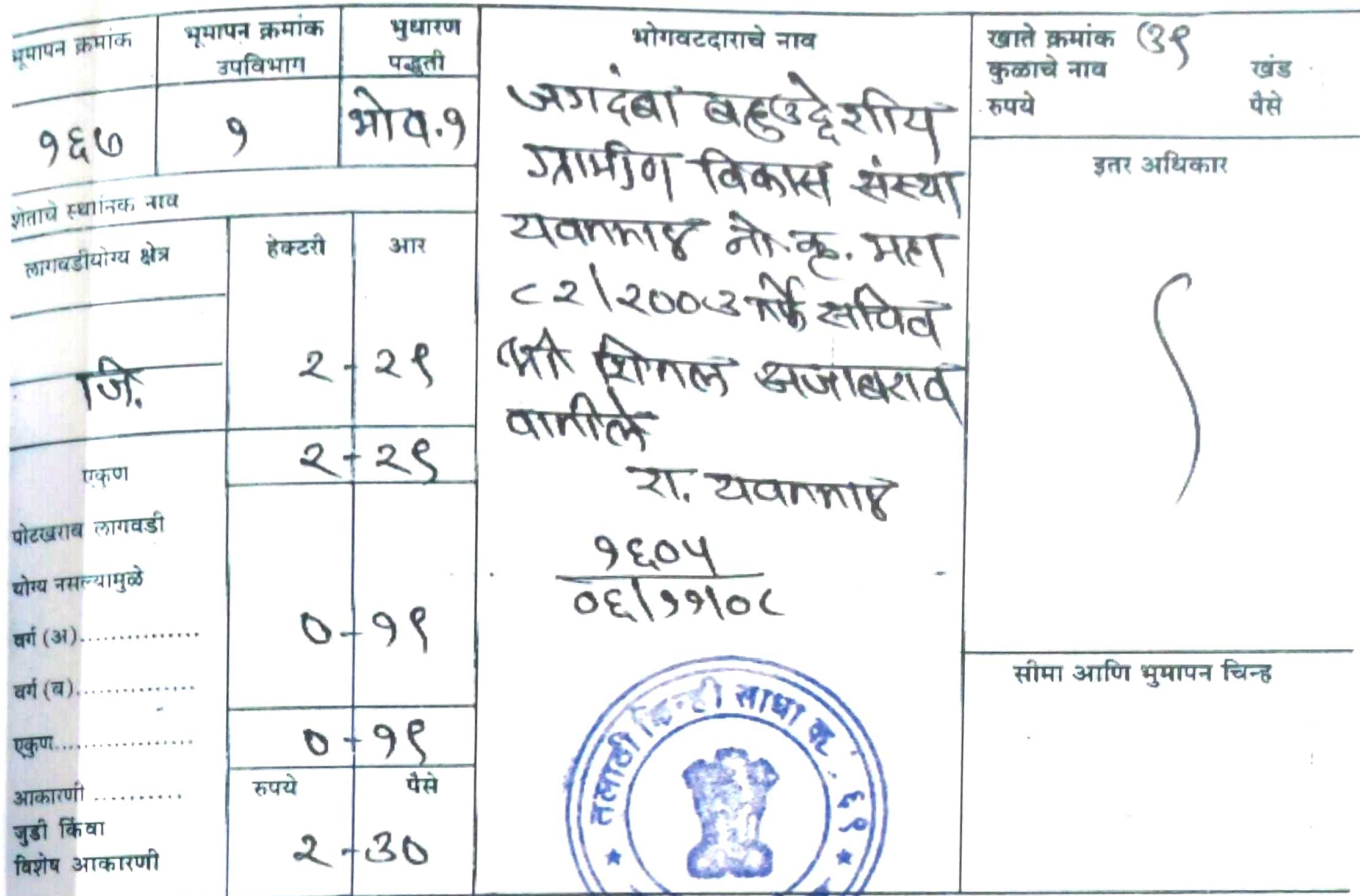 भूमापन क्रमांक
भूमापन क्रमांक
उपविभाग
भुधारण
पद्धती
१६७
१
भोव.१
शेताचे स्थानिक नाव
लागवडीयोग्य क्षेत्र
हेक्टरी
आर
जि.
२ - २९
एकुण
२ - २९
पोटखराब लागवडी
योग्य नसल्यामुळे
वर्ग (अ)...............
० - १९
वर्ग (ब)...............
एकुण..................
० - १९
आकारणी ..........
रुपये
पैसे
जुडी किंवा
विशेष आकारणी
२ - ३०
भोगवटदाराचे नाव
जगदंबा बहुउद्देशीय
ग्रामीण विकास संस्था
यवतमाळ नो.कृ. महा
८२/२००३ तर्फे सचिव
श्री शितल अजाबराव
वातीले
रा. यवतमाळ
१६०५
०६/११/०८
तलाठी साझा क्र. ६९
खाते क्रमांक (३९
कुळाचे नाव
खंड
रुपये
पैसे
इतर अधिकार
सीमा आणि भुमापन चिन्ह